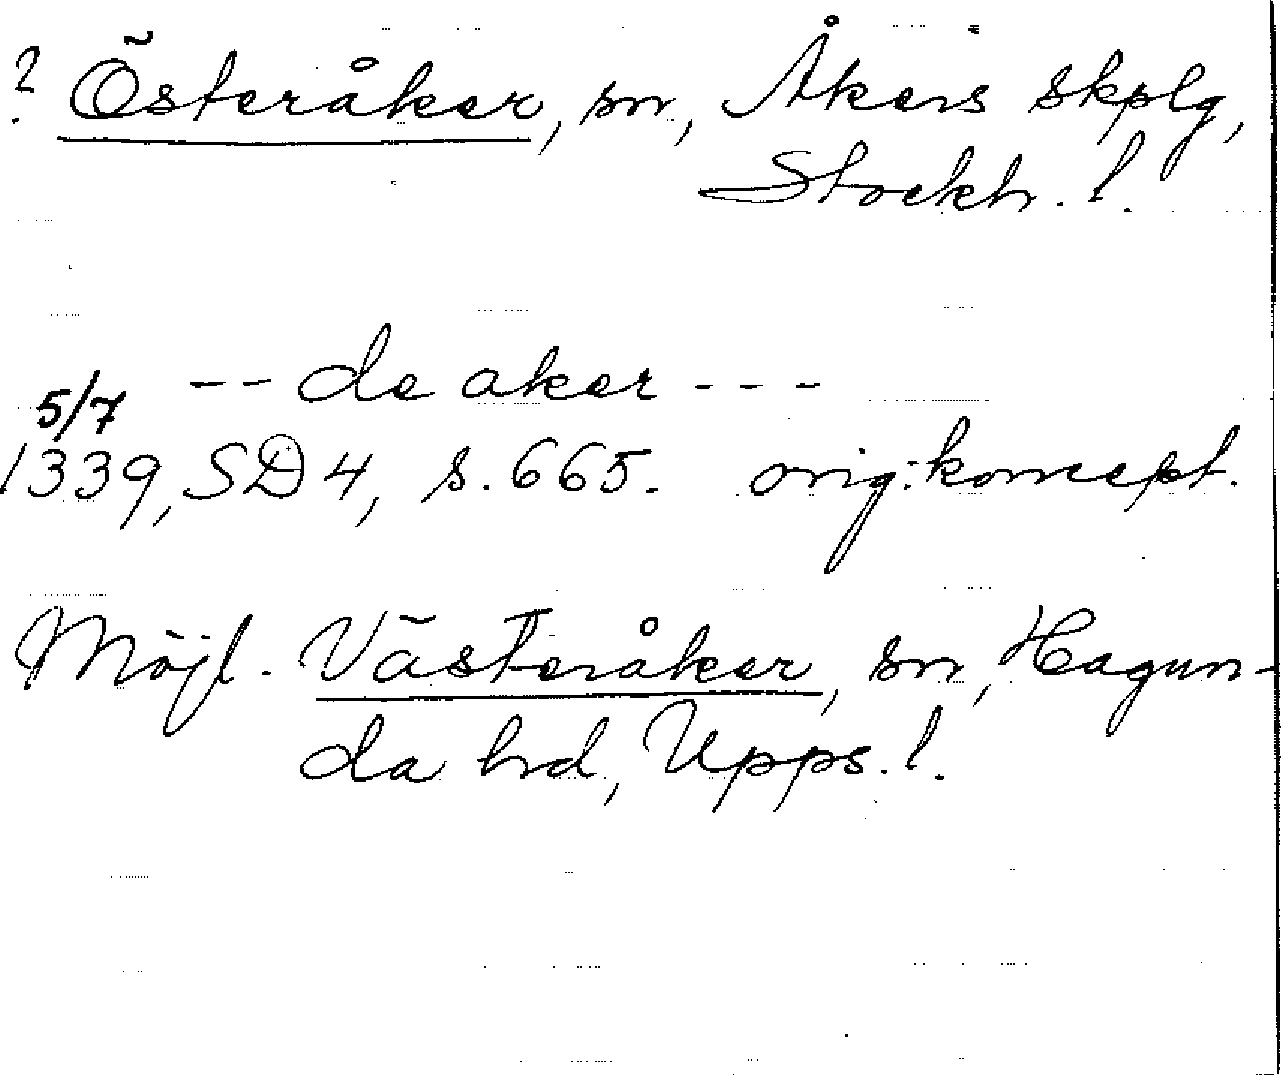 ? Österåker, sn, Åkers skplg,
Stockh. l.
-- de aker ---
5/7
1339, SD 4, s. 665. orig:koncept.
Möjl. Västeråker, sn, Hagun-
da hd, Upps. l.